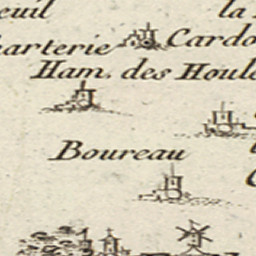 euil
la
harterie
Cardo
Ham. des Houle
Boureau